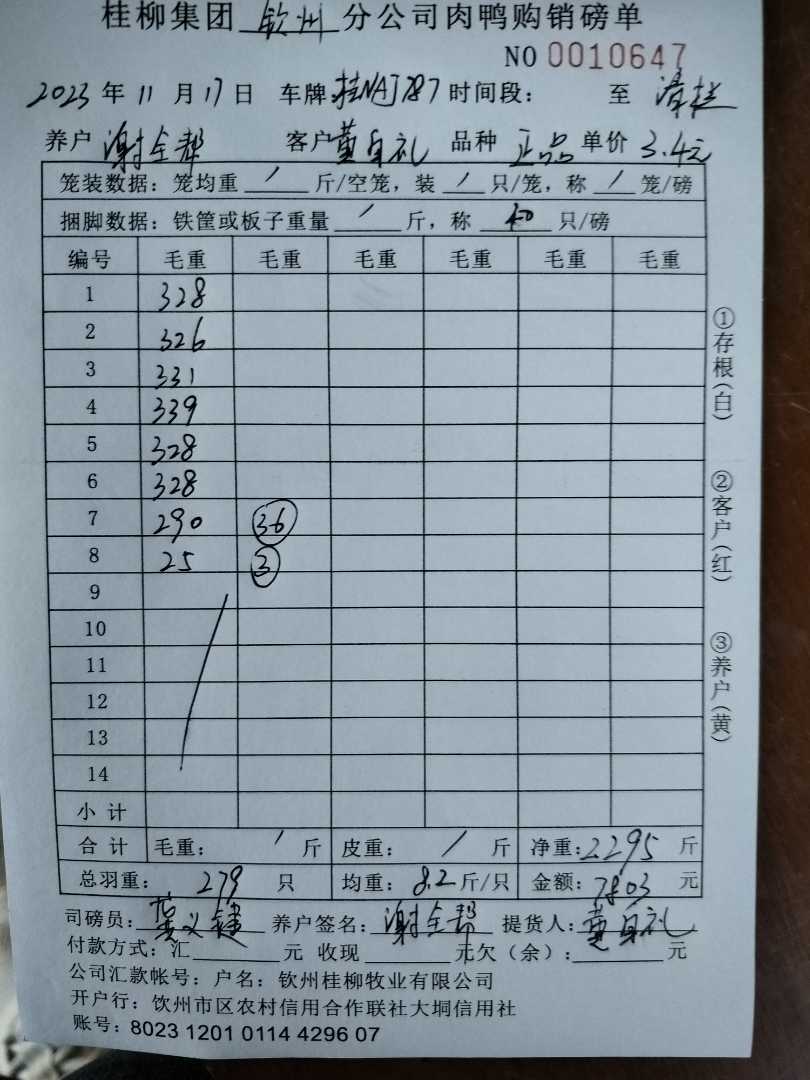 桂柳集团 钦州 分公司肉鸭购销磅单
NO 0010647
2023 年 11 月 17 日 车牌 桂NAJ787 时间段： 至 清栏
养户 谢全帮 客户 黄自礼 品种 正品 单价 3.4元
笼装数据：笼均重 / 斤/空笼，装 / 只/笼，称 / 笼/磅
捆脚数据：铁筐或板子重量 / 斤，称 40 只/磅
编号 毛重 毛重 毛重 毛重 毛重 毛重
1 328
2 326
3 331
4 339
5 328
6 328
7 290 36
8 25 3
9
10
11
12
13
14
小计
合计 毛重： / 斤 皮重： / 斤 净重：2295 斤
总羽重： 279 只 均重：8.2 斤/只 金额：7803 元
司磅员： 养户签名：谢全帮 提货人：黄自礼
付款方式：汇 元 收现 元欠（余）： 元
公司汇款帐号：户名：钦州桂柳牧业有限公司
开户行：钦州市区农村信用合作联社大垌信用社
账号：8023 1201 0114 4296 07
①存根（白）
②客户（红）
③养户（黄）